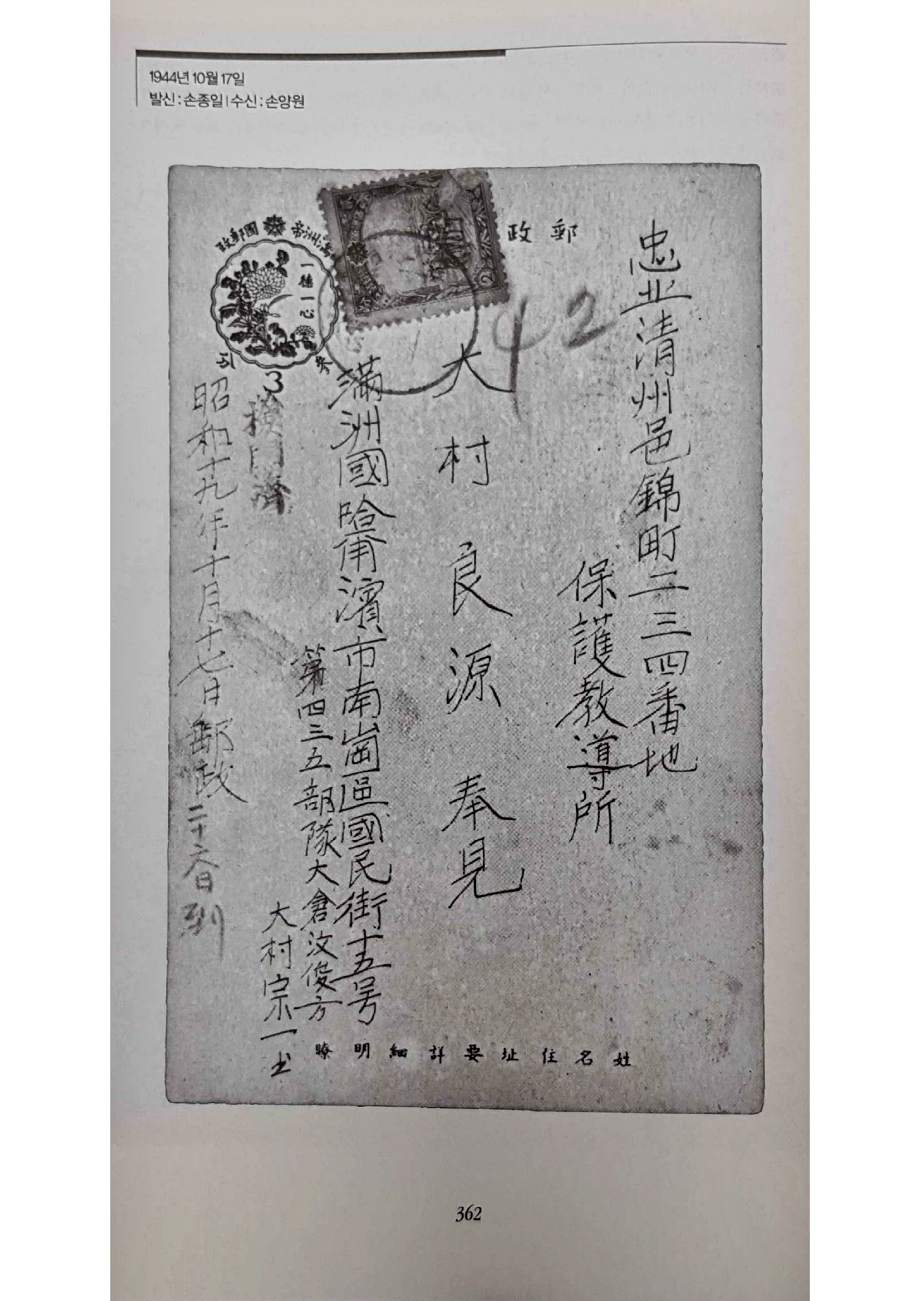 1944년 10월 17일
발신 : 손종일 | 수신 : 손양원
郵政
滿洲帝國郵政
一德一心
3
42
忠北清州邑錦町二三四番地
保護教導所
大村良源奉見
滿洲國哈甫濱市南崗區國民街十五号
第四三五部隊大倉汶俊方
大村宗一
檢閱濟
昭和十九年十月十七日郵政
二十六日到
姓名住址要詳細明瞭
362